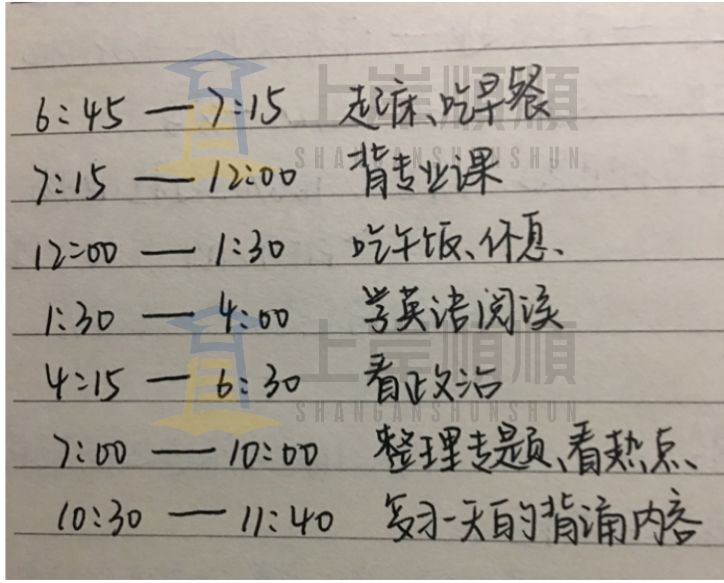 6:45 — 7:15 起床、吃早餐
7:15 — 12:00 背专业课
12:00 — 1:30 吃午饭、休息、
1:30 — 4:00 学英语阅读
4:15 — 6:30 看政治
7:00 — 10:00 整理专题、看热点、
10:30 — 11:40 复习一天的背诵内容
上岸顺顺
SHANGANSHUNSHUN
上岸顺顺
SHANGANSHUNSHUN